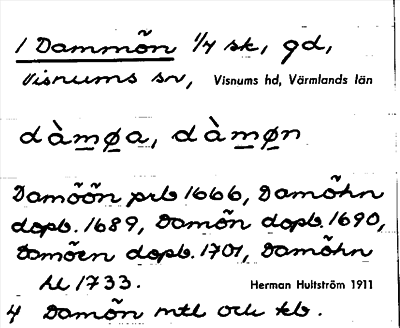 1 Dammõn 1/4 sk, gd,
Visnums sn, Visnums hd, Värmlands län
dàm̲ø̲a, dàm̲ø̲n
Damöõn prb 1666, Damöhn
dopb. 1689, Damõn dopb. 1690,
Damöen dopb. 1701, Damõhn
hl 1733. Herman Hultström 1911
4 Damõn mtl och kb.